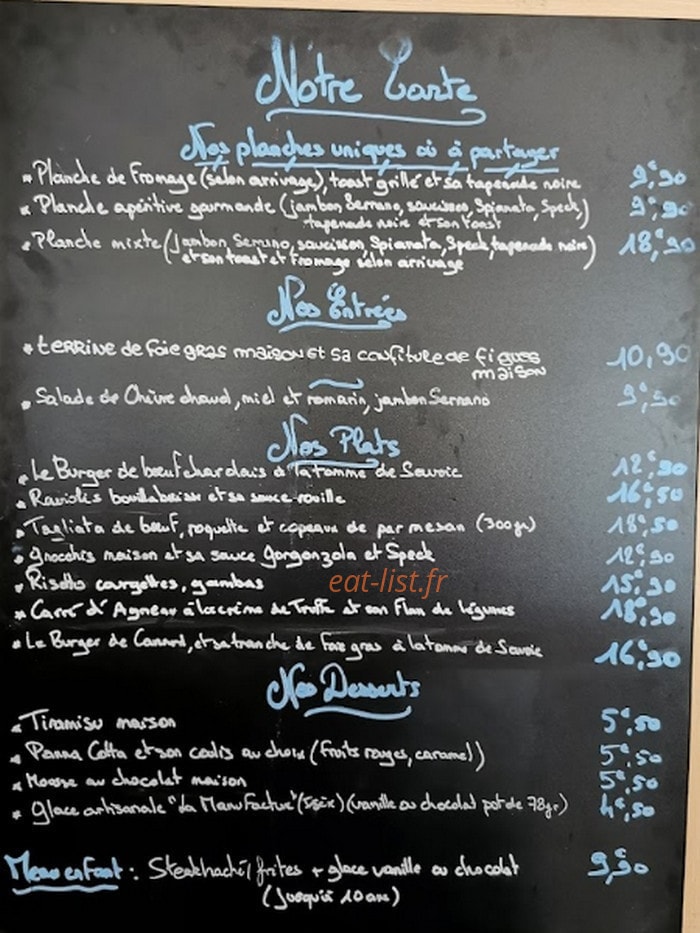 Notre Carte
Nos planches uniques où à partager
* Planche de Fromage (selon arrivage), toast grillé et sa tapenade noire 9€,90
* Planche apéritive gourmande (jambon Serrano, saucisson, Spianata, Speck,) 9€,90
tapenade noire et son toast
* Planche mixte (Jambon, Serrano, saucisson, Spianata, Speck, tapenade noire) 18€,90
et son toast et fromage selon arrivage
Nos Entrées
* terrine de foie gras maison et sa confiture de figues 10,90
maison
* Salade de Chèvre chaud, miel et romarin, jambon Serrano 9€,90
Nos Plats
* Le Burger de bœuf charolais à la tomme de Savoie 12€,90
* Raviolis bouillabaisse et sa sauce rouille 16€,50
* Tagliata de bœuf, roquette et copeaux de parmesan (300gr) 18€,50
* Gnocchis maison et sa sauce gorgonzola et Speck 12€,90
* Risotto courgettes, gambas 15€,90
eat-list.fr
* Carré d'Agneau à la crème de Truffe et son Flan de légumes 18€,90
* Le Burger de Canard, et sa tranche de foie gras à la tomme de Savoie 16€,90
Nos Desserts
* Tiramisu maison 5€,50
* Panna Cotta et son coulis au choix (fruits rouges, caramel) 5€,50
* Mousse au chocolat maison 5€,50
* Glace artisanale "La Manufacture" (vanille ou chocolat pot de 78gr) 4€,50
Menu enfant : Steak haché/frites + glace vanille ou chocolat 9€,90
(Jusqu'à 10 ans)